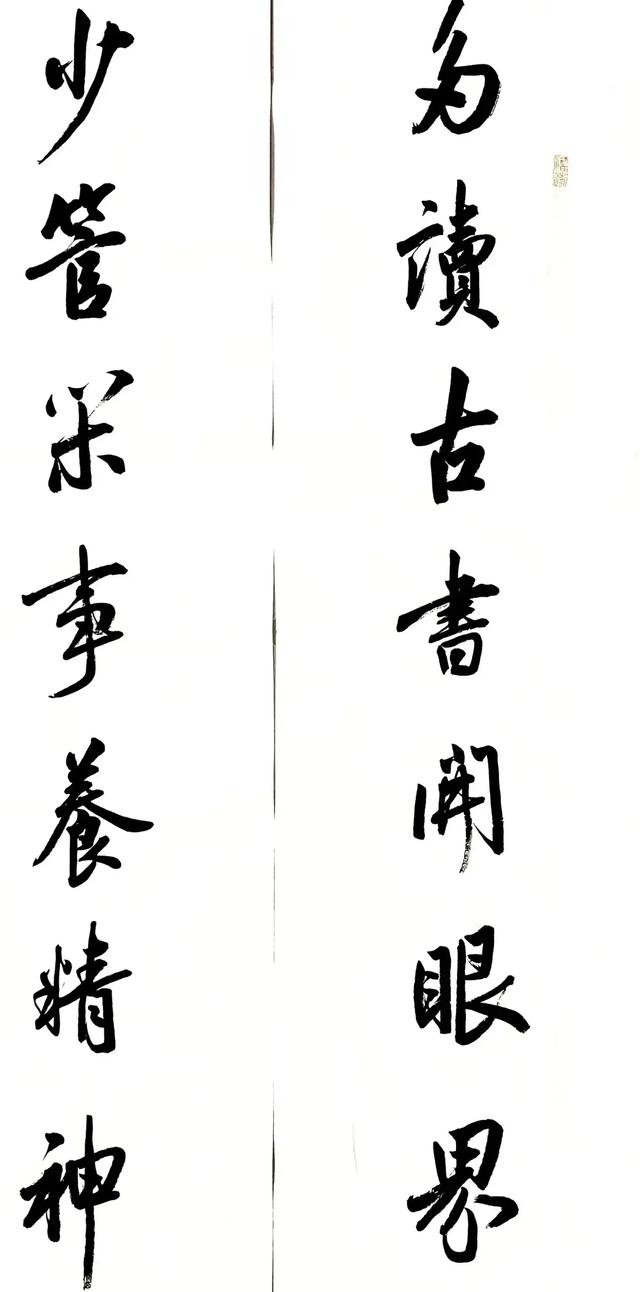 多讀古書開眼界
少管閑事養精神